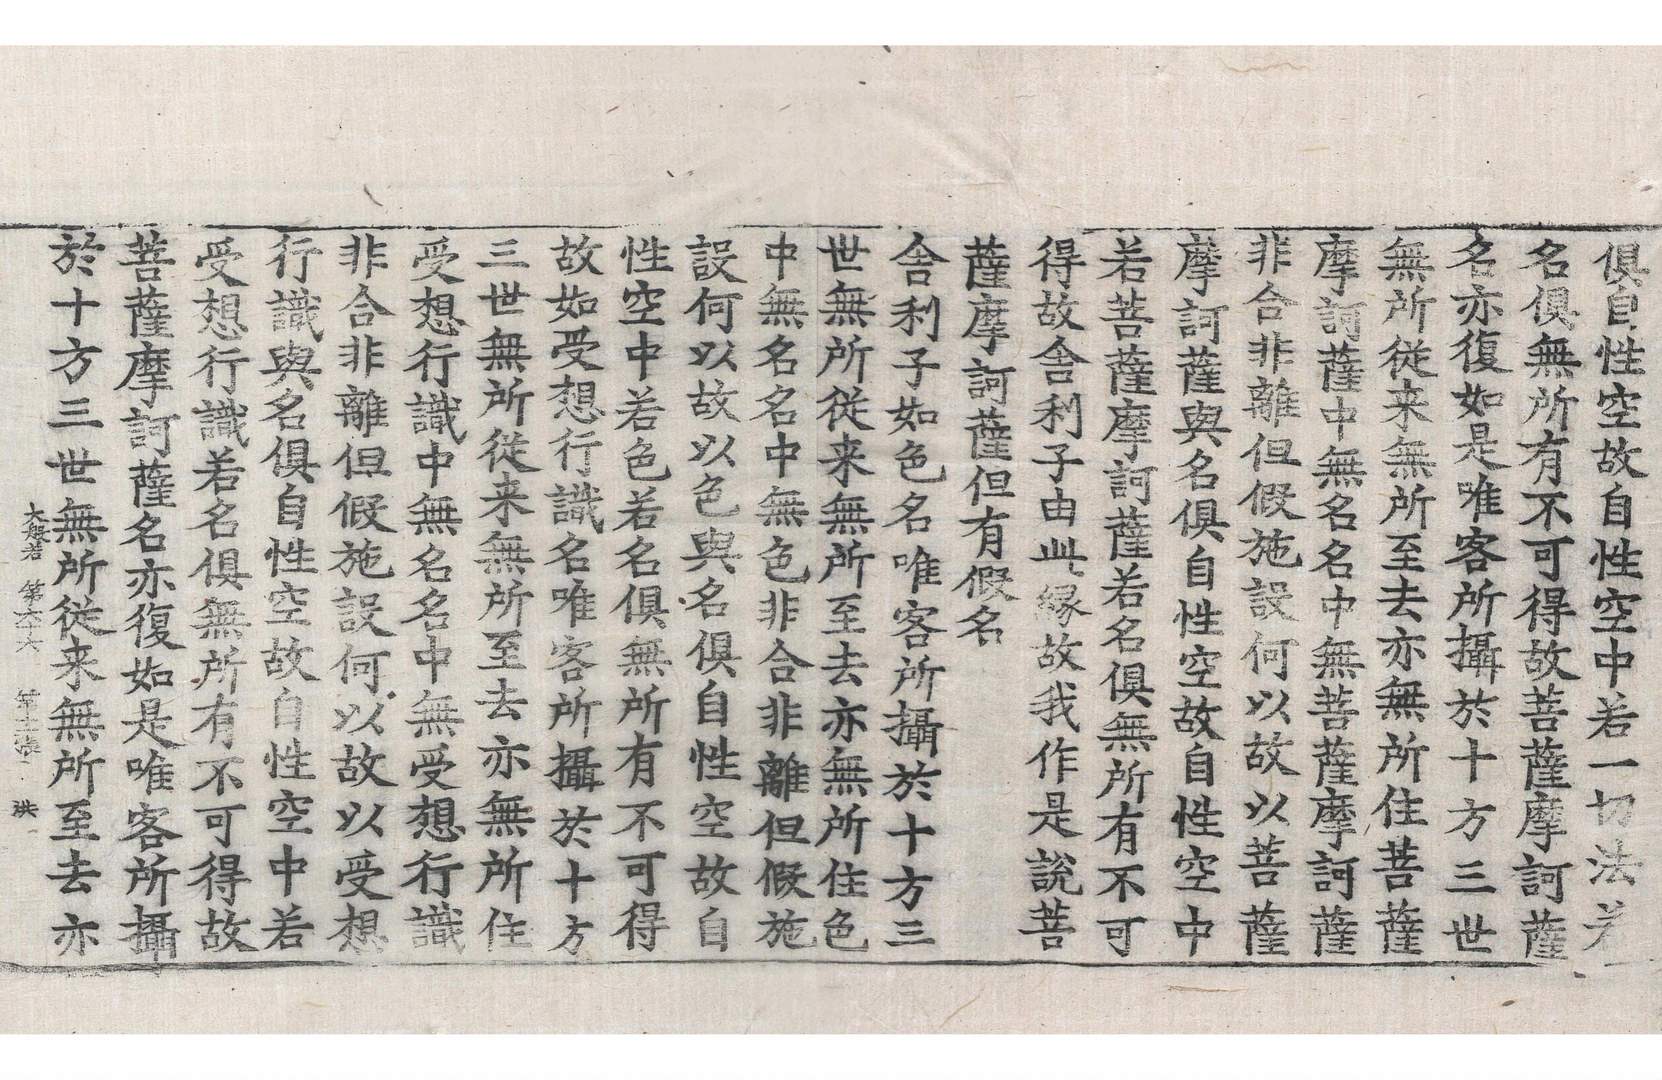 俱自性空故自性空中若一切法若
名俱無所有不可得故菩薩摩訶薩
名亦復如是唯客所攝於十方三世
無所從来無所至去亦無所住菩薩
摩訶薩中無名名中無菩薩摩訶薩
非合非離但假施設何以故以菩薩
摩訶薩與名俱自性空故自性空中
若菩薩摩訶薩若名俱無所有不可
得故舍利子由此緣故我作是說菩
薩摩訶薩但有假名
舍利子如色名唯客所攝於十方三
世無所從来無所至去亦無所住色
中無名名中無色非合非離但假施
設何以故以色與名俱自性空故自
性空中若色若名俱無所有不可得
故如受想行識名唯客所攝於十方
三世無所從来無所至去亦無所住
受想行識中無名名中無受想行識
非合非離但假施設何以故以受想
行識與名俱自性空故自性空中若
受想行識若名俱無所有不可得故
菩薩摩訶薩名亦復如是唯客所攝
於十方三世無所從来無所至去亦
大般若 第六十六 第十一張 洪